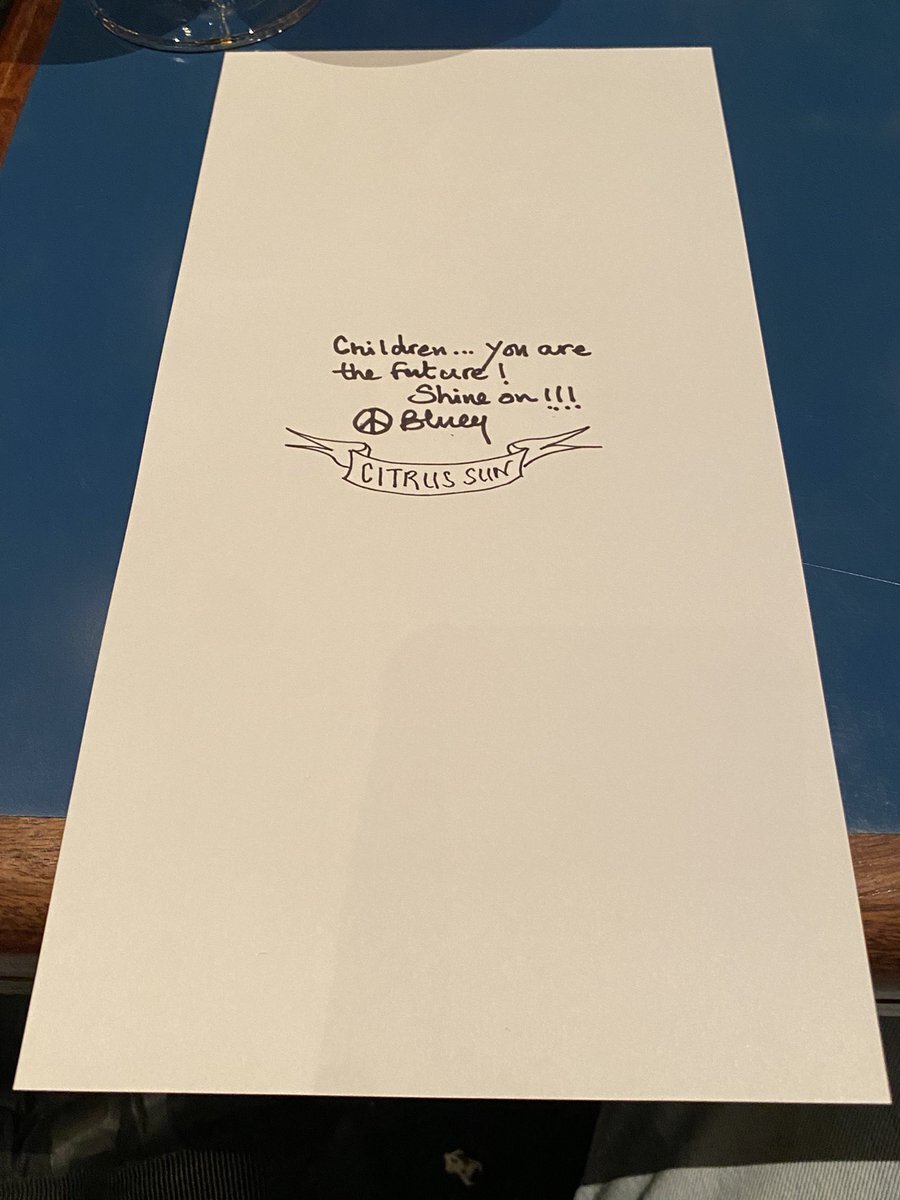 Children... you are
the future!
Shine on!!!
☮ Bluey
CITRUS SUN